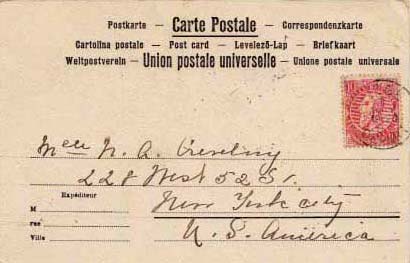 Postkarte — Carte Postale — Correspondenzkarte
Cartolina postale — Post card — Levelező-Lap — Briefkaart
Weltpostverein — Union postale universelle — Unione postale universale
Melle N. A.
228 West 52 St.
Expéditeur
New York city
M
rue
U. S. America
Ville